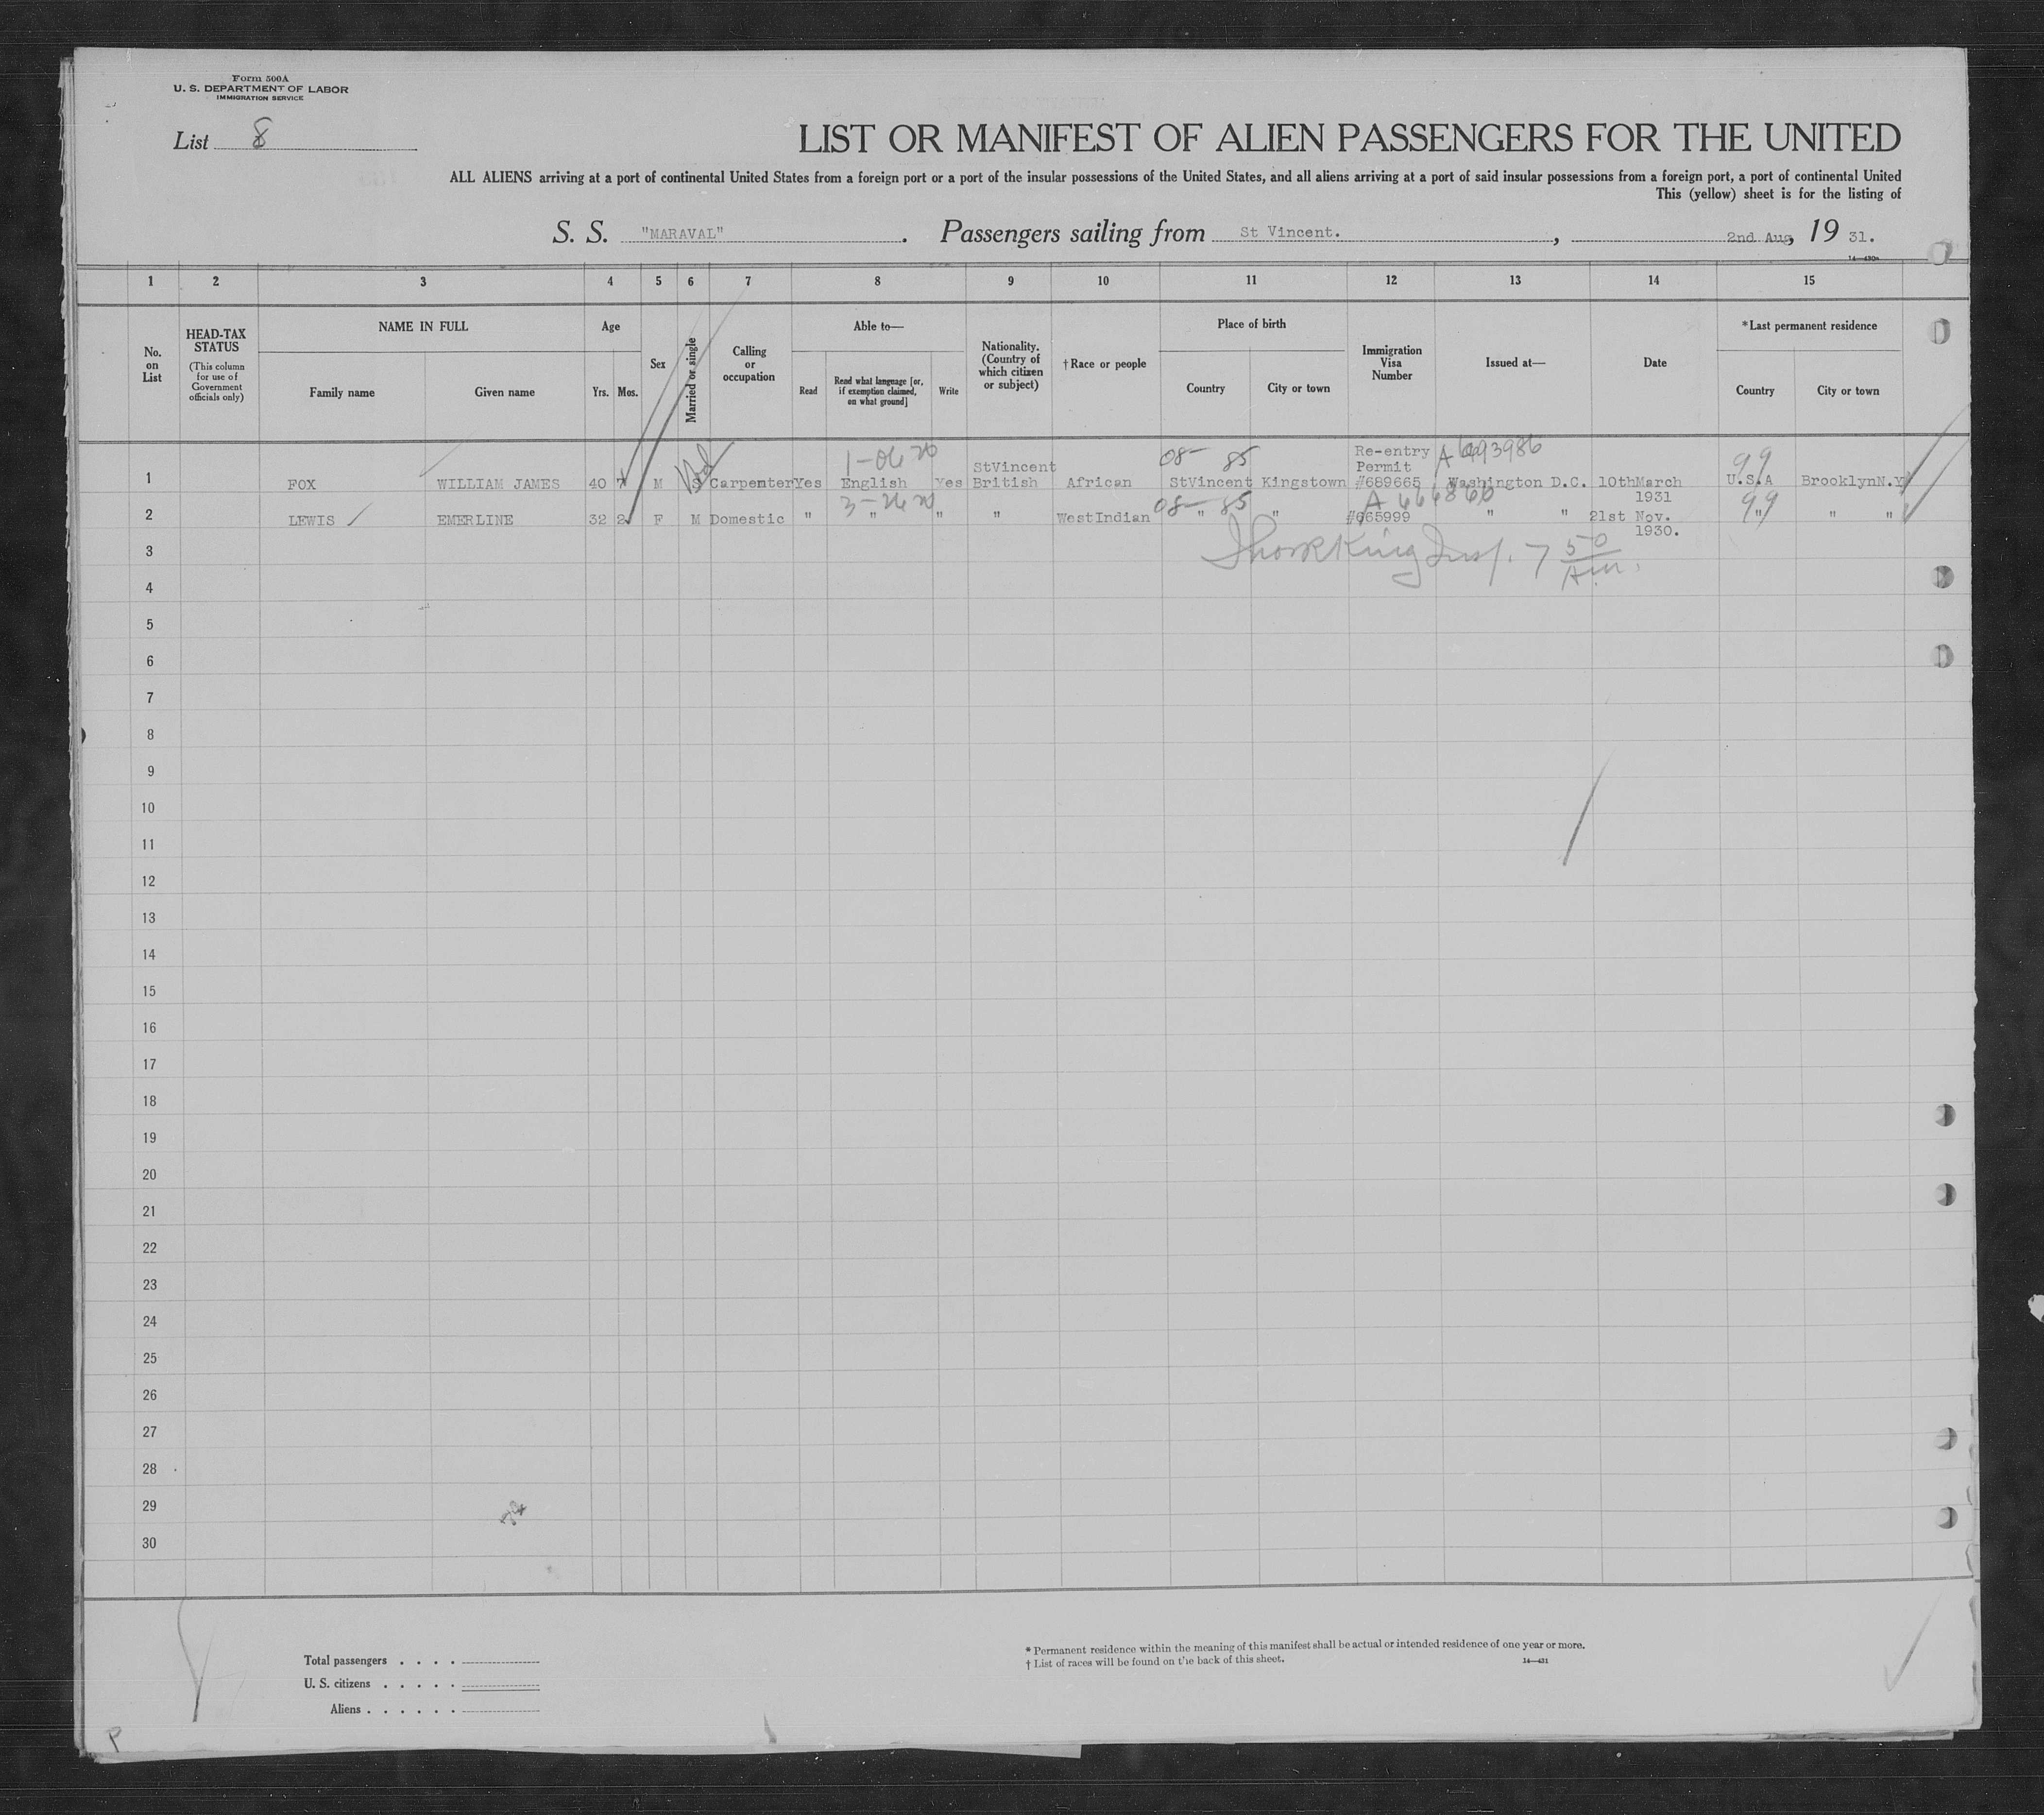 Form 500A
U. S. DEPARTMENT OF LABOR
IMMIGRATION SERVICE
List 8
LIST OR MANIFEST OF ALIEN PASSENGERS FOR THE UNITED
ALL ALIENS arriving at a port of continental United States from a foreign port or a port of the insular possessions of the United States, and all aliens arriving at a port of said insular possessions from a foreign port, a port of continental United
This (yellow) sheet is for the listing of
S. S. "MARAVAL" . Passengers sailing from St Vincent. , 2nd Aug, 19 31.
14—430a
1 2 3 4 5 6 7 8 9 10 11 12 13 14 15
No. on List
HEAD-TAX STATUS
(This column for use of Government officials only)
NAME IN FULL
Family name Given name
Age
Yrs. Mos.
Sex
Married or single
Calling or occupation
Able to—
Read
Read what language [or, if exemption claimed, on what ground]
Write
Nationality. (Country of which citizen or subject)
†Race or people
Place of birth
Country City or town
Immigration Visa Number
Issued at—
Date
*Last permanent residence
Country City or town
08- 85 Re-entry A 693986 99
StVincent Permit
1 FOX WILLIAM JAMES 40 7 M S Carpenter Yes English Yes British African StVincent Kingstown #689665 Washington D.C. 10thMarch U.S.A BrooklynN.Y
1931
08- 85 99
2 LEWIS EMERLINE 32 2 F M Domestic " " " " WestIndian " " #665999 " " 21st Nov. " " "
1930.
3 Insp. 7 50 AM.
4
5
6
7
8
9
10
11
12
13
14
15
16
17
18
19
20
21
22
23
24
25
26
27
28
29
30
Total passengers . . . .
U. S. citizens . . . . .
Aliens . . . . . .
* Permanent residence within the meaning of this manifest shall be actual or intended residence of one year or more.
† List of races will be found on the back of this sheet.
14—431
P